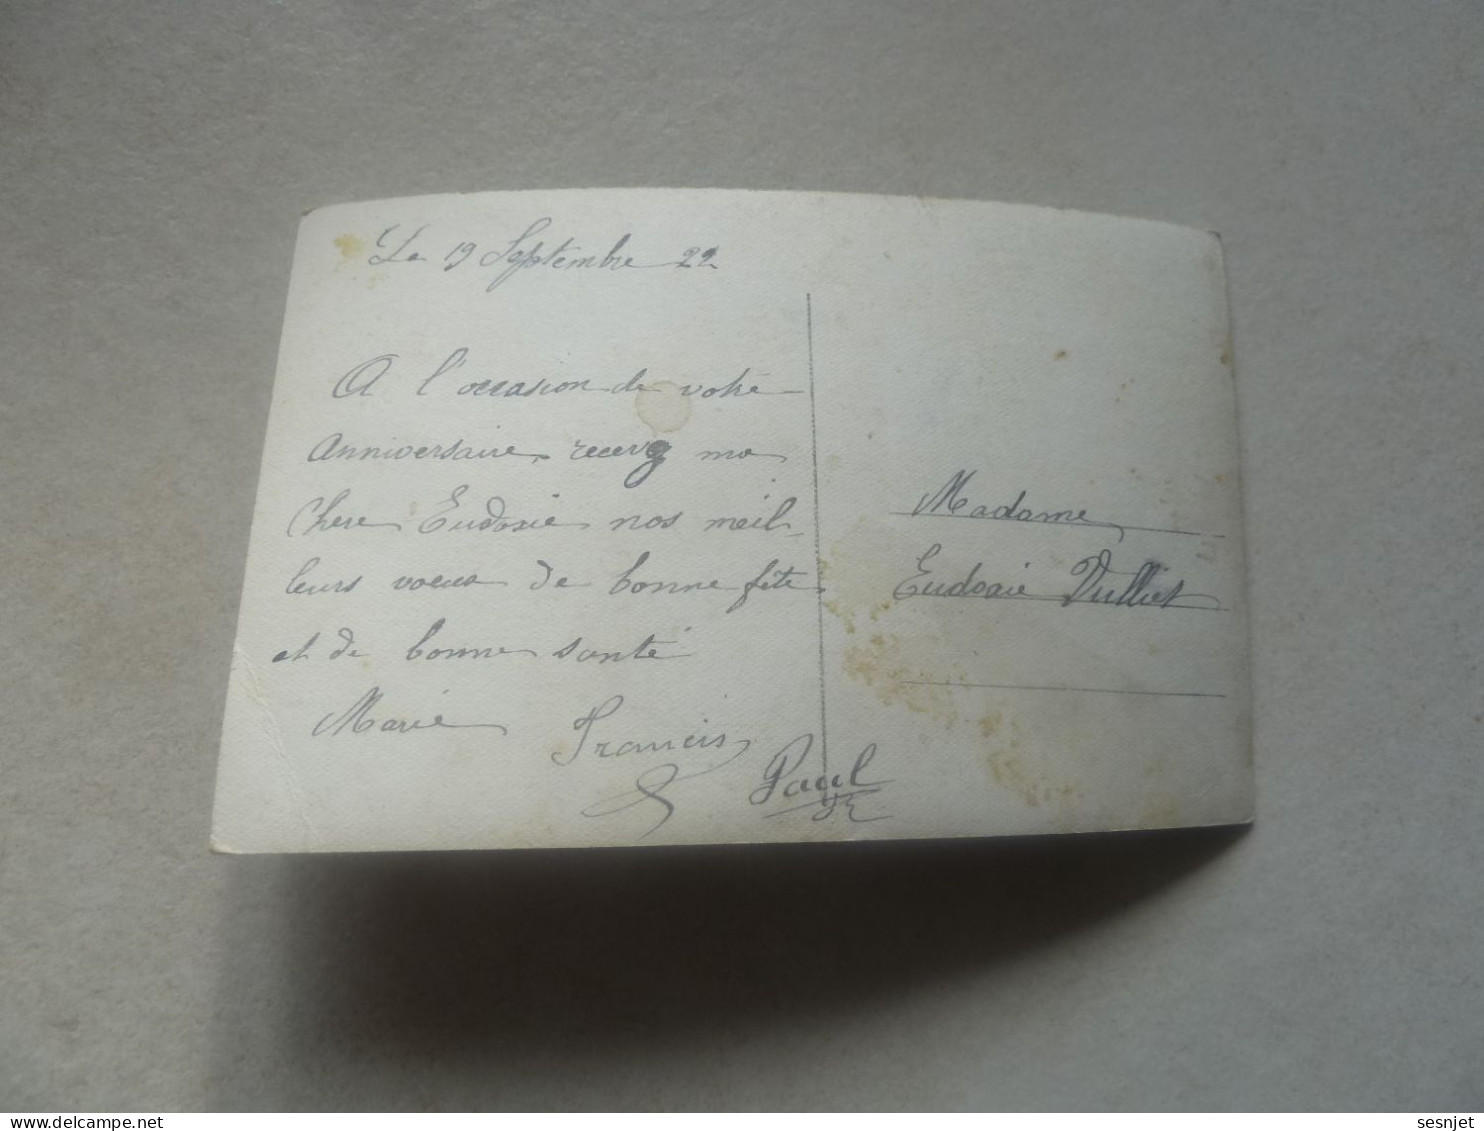 Le 19 Septembre 22
A l'occasion de votre
anniversaire, recevez ma
chere Eudoxie nos meil-
leurs voeux de bonne fête
et de bonne santé
Marie Francis
Paul
Madame
Eudoxie Dulliet
sesnjet